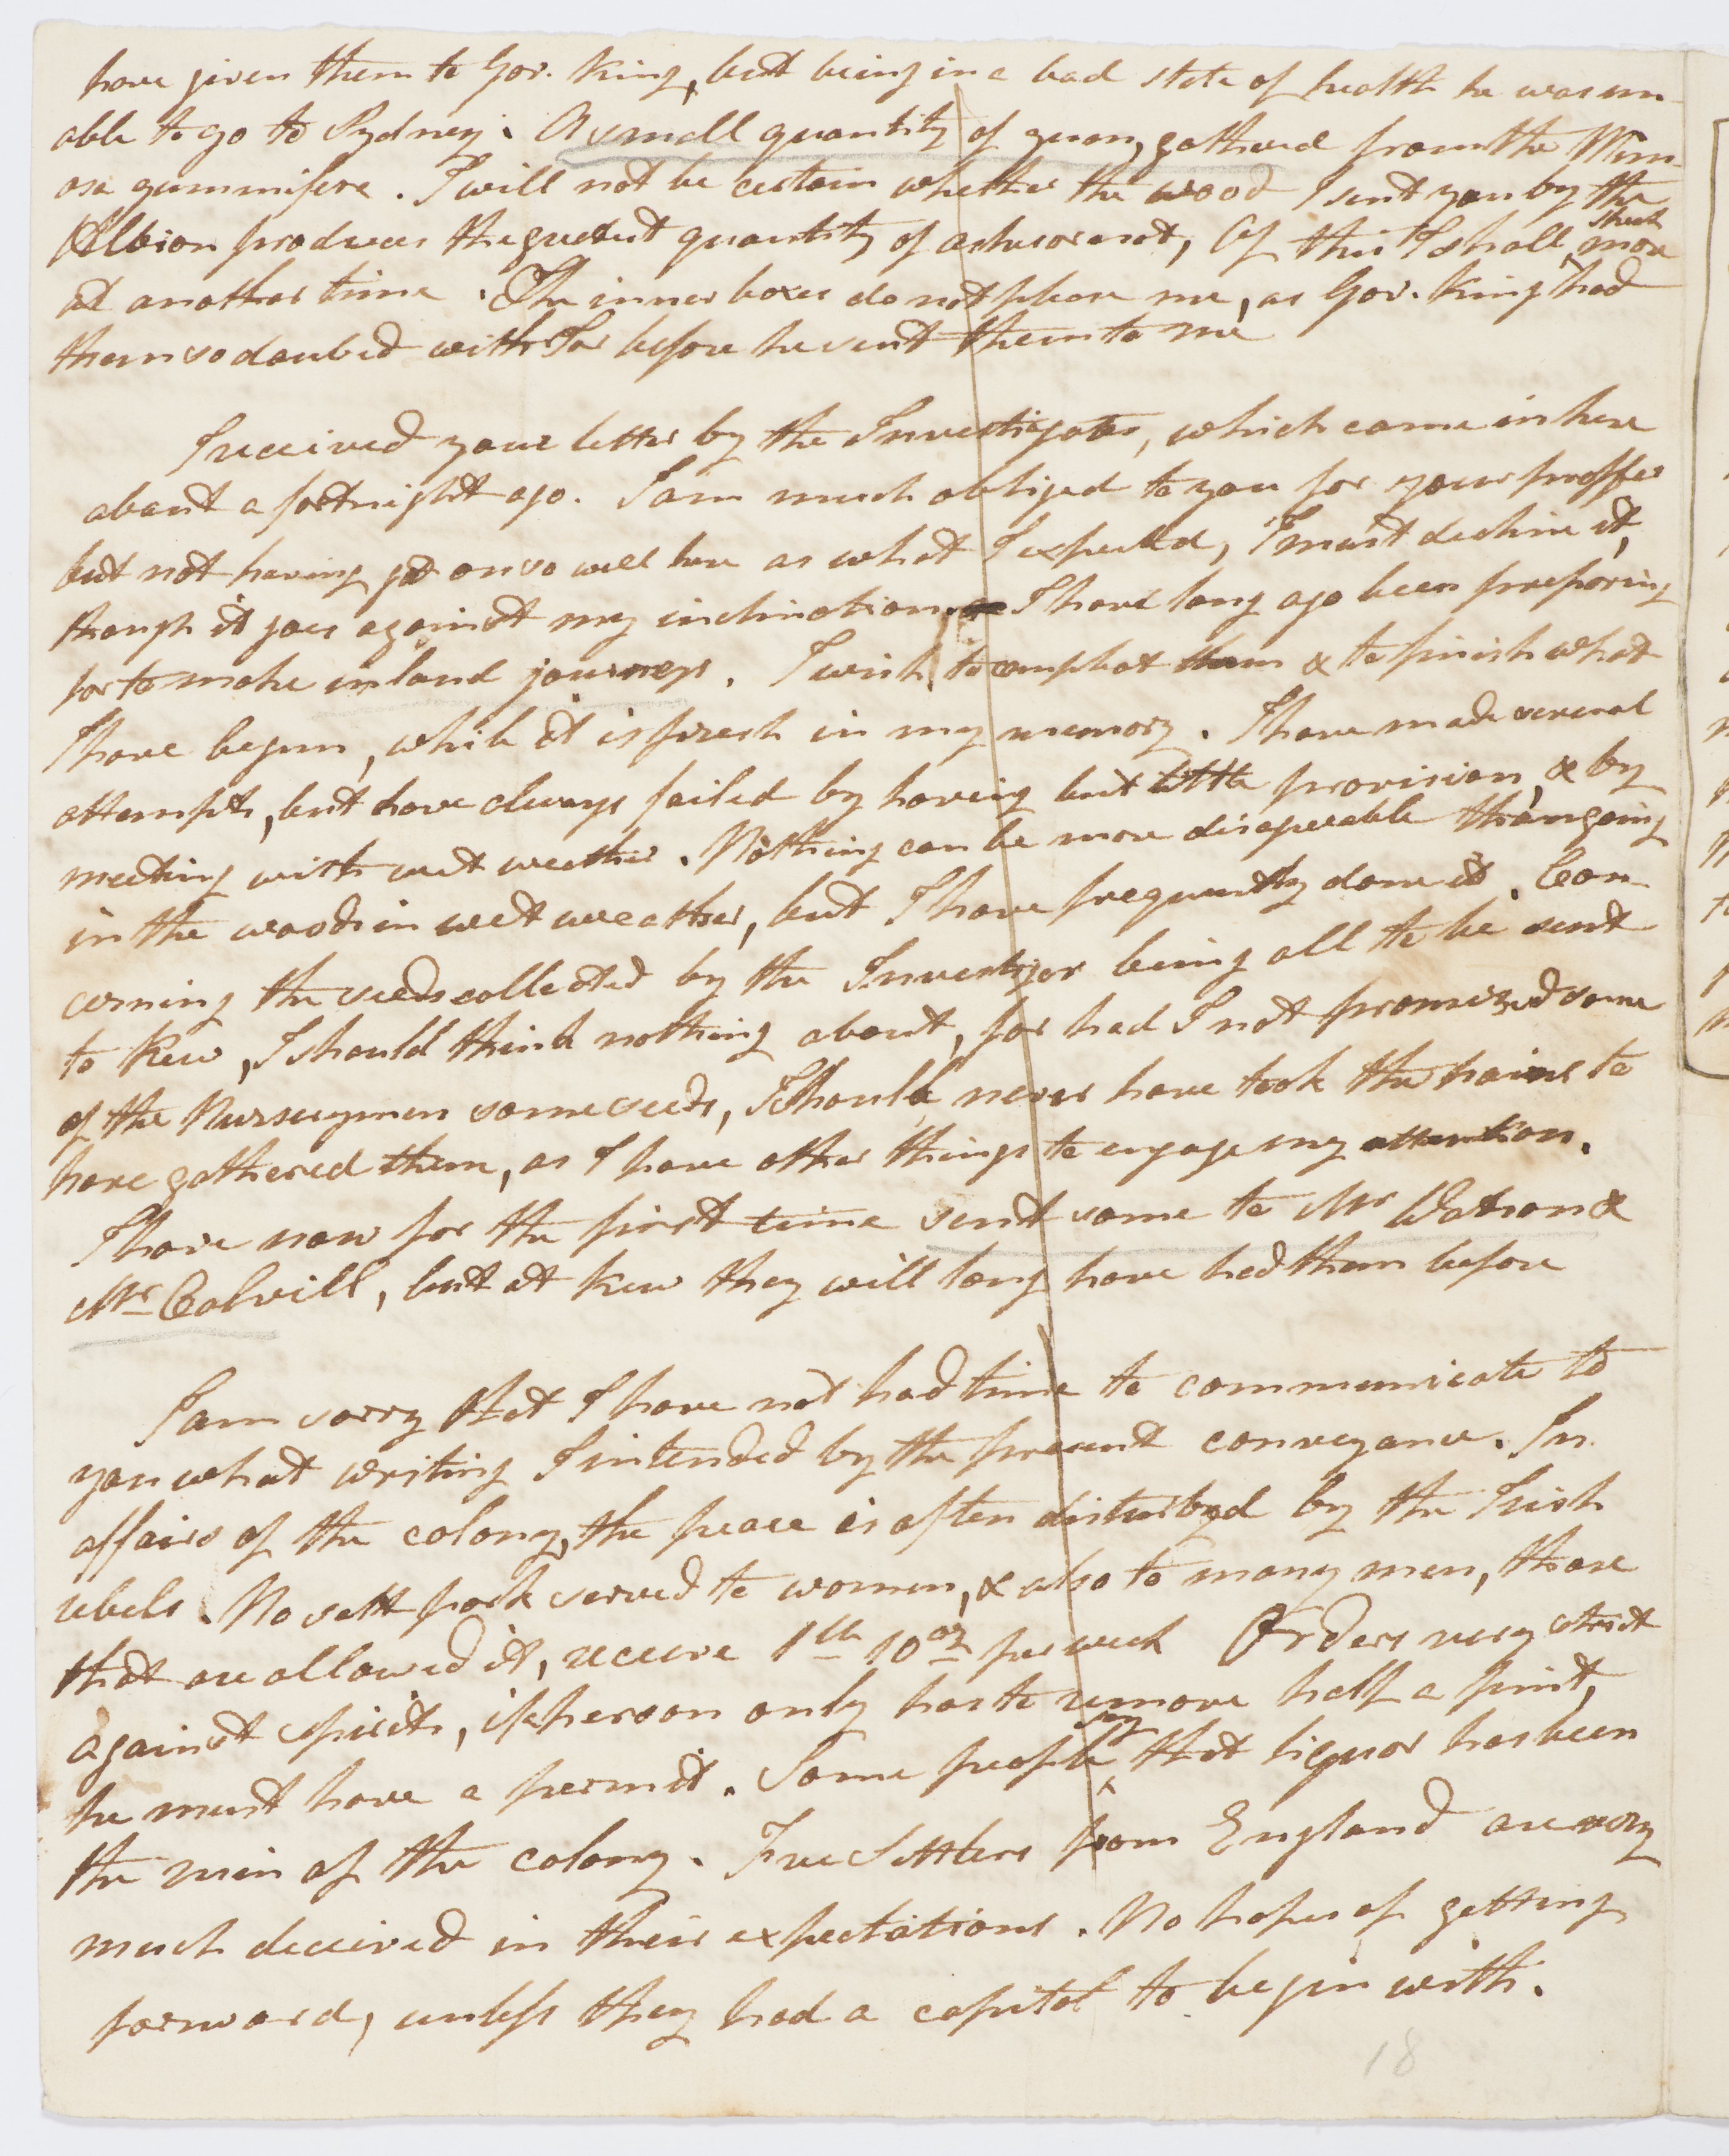 have given them to Gov. King, but being in a bad state of health he was un-
able to go to Sydney. A small quantity of gum, gathered from the Mim-
osa gummifera. I will not be certain whether the wood I sent you by the
Albion produces the greatest quantity of ashes or not, Of this I shall speak more
at another time. The inner boxes do not please me, as Gov. King had
them so daubed with Tar before he sent them to me
I received your letter by the Investigator, which came in here
about a fortnight ago. I am much obliged to you for your proffer
but not having got on so well here as what I expected, I must decline it,
though it goes against my inclination. I have long ago been preparing
for to make inland journeys. I wish to compleat them & to finish what
I have begun, while it is fresh in my memory. I have made several
attempts, but have always failed by having but little provision, & by
meeting with wet weather. Nothing can be more disagreeable than going
in the woods in wet weather, but I have frequently done it. Con-
cerning the seeds collected by the Investigor being all to be sent
to Kew, I should think nothing about, for had I not promized some
of the Nurserymen some seeds, I should never have took the pains to
have gathered them, as I have other things to engage my attention.
I have now for the first time sent some to Mr Watson &
Mr. Colvill, but at Kew they will long have had them before
I am sorry that I have not had time to communicate to
you what writing I intended by the present conveyance. In
affairs of the colony, the peace is often disturbed by the Irish
rebels. No salt pork served to women, & also to many men, those
that are allowed it, receive 1 lb 10 oz per week Orders very strict
against spirits, if a person only has to remove half a pint,
he must have a permit. Some people say that liquor has been
the ruin of the colony. Free Settlers from England are very
much deceived in their expectations. No hopes of getting
forward, unless they had a capital to begin with.
18